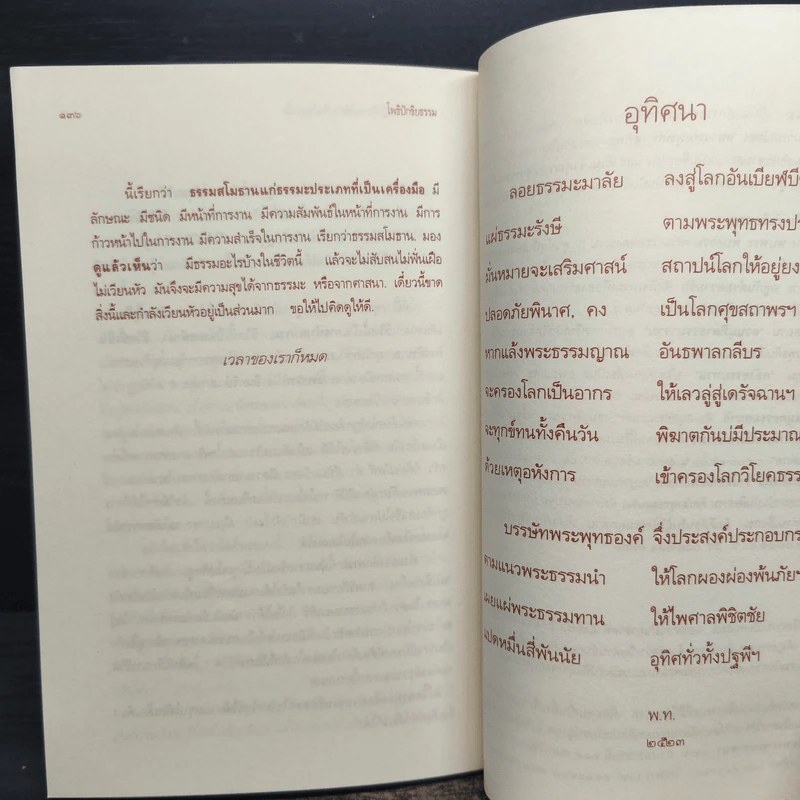 ๑๓๖
โพธิปักขิยธรรม
นี้เรียกว่า ธรรมสโมธานแก่ธรรมะประเภทที่เป็นเครื่องมือ มี
ลักษณะ มีชนิด มีหน้าที่การงาน มีความสัมพันธ์ในหน้าที่การงาน มีการ
ก้าวหน้าไปในการงาน มีความสำเร็จในการงาน เรียกว่าธรรมสโมธาน. มอง
ดูแล้วเห็นว่า มีธรรมอะไรบ้างในชีวิตนี้ แล้วจะไม่สับสนไม่ฟั่นเฝือ
ไม่เวียนหัว มันจึงจะมีความสุขได้จากธรรมะ หรือจากศาสนา. เดี๋ยวนี้ขาด
สิ่งนี้และกำลังเวียนหัวอยู่เป็นส่วนมาก ขอให้ไปคิดดูให้ดี.
เวลาของเราก็หมด
อุทิศนา
ลอยธรรมะมาลัย ลงสู่โลกอันเบียฬบี
แผ่ธรรมะรังษี ตามพระพุทธทรงป
มั่นหมายจะเสริมศาสน์ สถาปน์โลกให้อยู่ยง
ปลอดภัยพินาศ, คง เป็นโลกศุขสถาพรฯ
หากแล้งพระธรรมญาณ อันธพาลกลีบร
จะครองโลกเป็นอากร ให้เลวลู่สู่เดรัจฉานฯ
จะทุกข์ทนทั้งคืนวัน พิฆาตกันบ่มีประมาณ
ด้วยเหตุอหังการ เข้าครองโลกวิโยคธรร
บรรษัทพระพุทธองค์ จึ่งประสงค์ประกอบกร
ตามแนวพระธรรมนำ ให้โลกผองผ่องพ้นภัยฯ
เผยแผ่พระธรรมทาน ให้ไพศาลพิชิตชัย
แปดหมื่นสี่พันนัย อุทิศทั่วทั้งปฐพีฯ
พ.ท.
๒๕๒๓